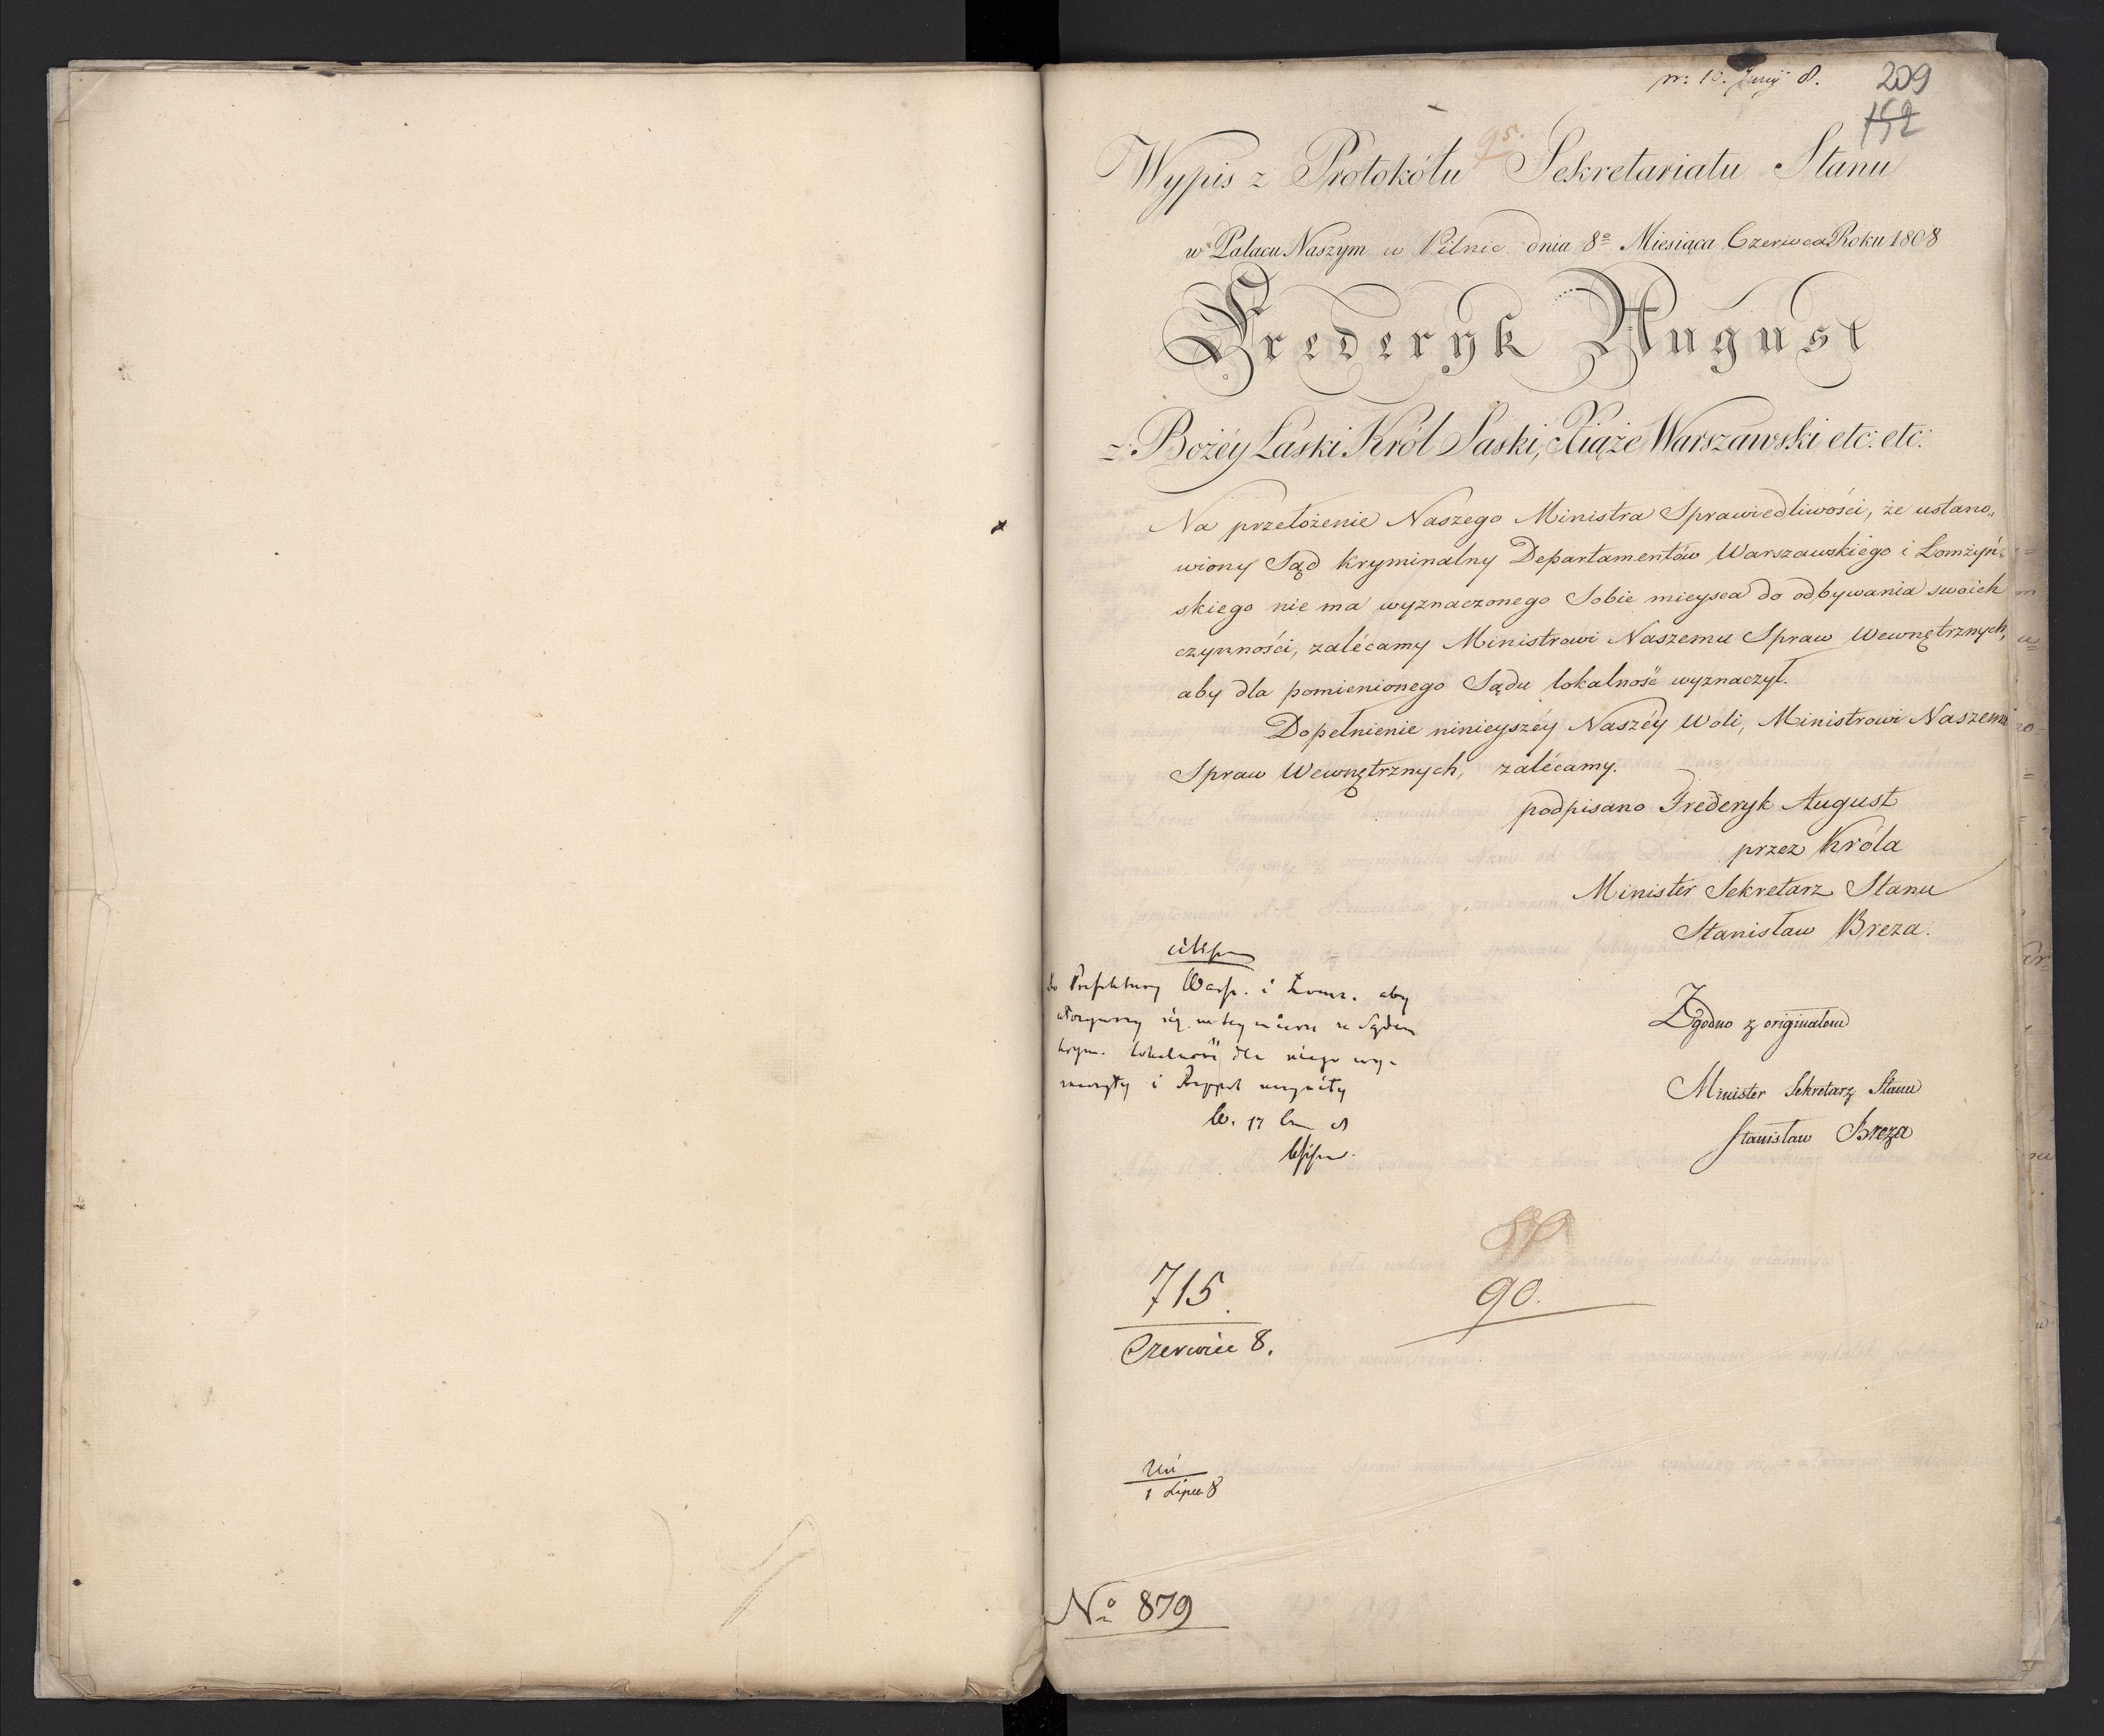 pr: 16. Junij 8.
209
152
95.
Wypis z Protokółu Sekretariatu Stanu
w Pałacu Naszym w Pilnic dnia 8º Miesiąca Czerwca Roku 1808
Frederyk August
z Bożéy Łaski Król Saski, Xiąże Warszawski etc: etc:
Na przełożenie Naszego Ministra Sprawiedliwości, że ustano„
wiony Sąd kryminalny Departamentów Warszawskiego i Łomżyń„
skiego nie ma wyznaczonego Sobie mieysca do odbywania swoich
czynności, zalécamy Ministrowi Naszemu Spraw Wewnętrznych,
aby dla pomienionego Sądu lokalność wyznaczył.
Dopełnienie ninieyszéy Naszéy Woli, Ministrowi Naszemu
Spraw Wewnętrznych, zalécamy.
podpisano Frederyk August
przez Króla
Minister Sekretarz Stanu
Stanisław Breza.
do Prefektury Warsz. i Łomz. aby
się w tey mierze ze Sądem
krym. lokalność dla niego wy-
znaczyły i Rapport uczyniły
W. 17
Zgodno z originałem
Minister Sekretarz Stanu
Stanisław Breza
90.
715.
Czerwiec 8.
1 Lipca 8
Nº 879